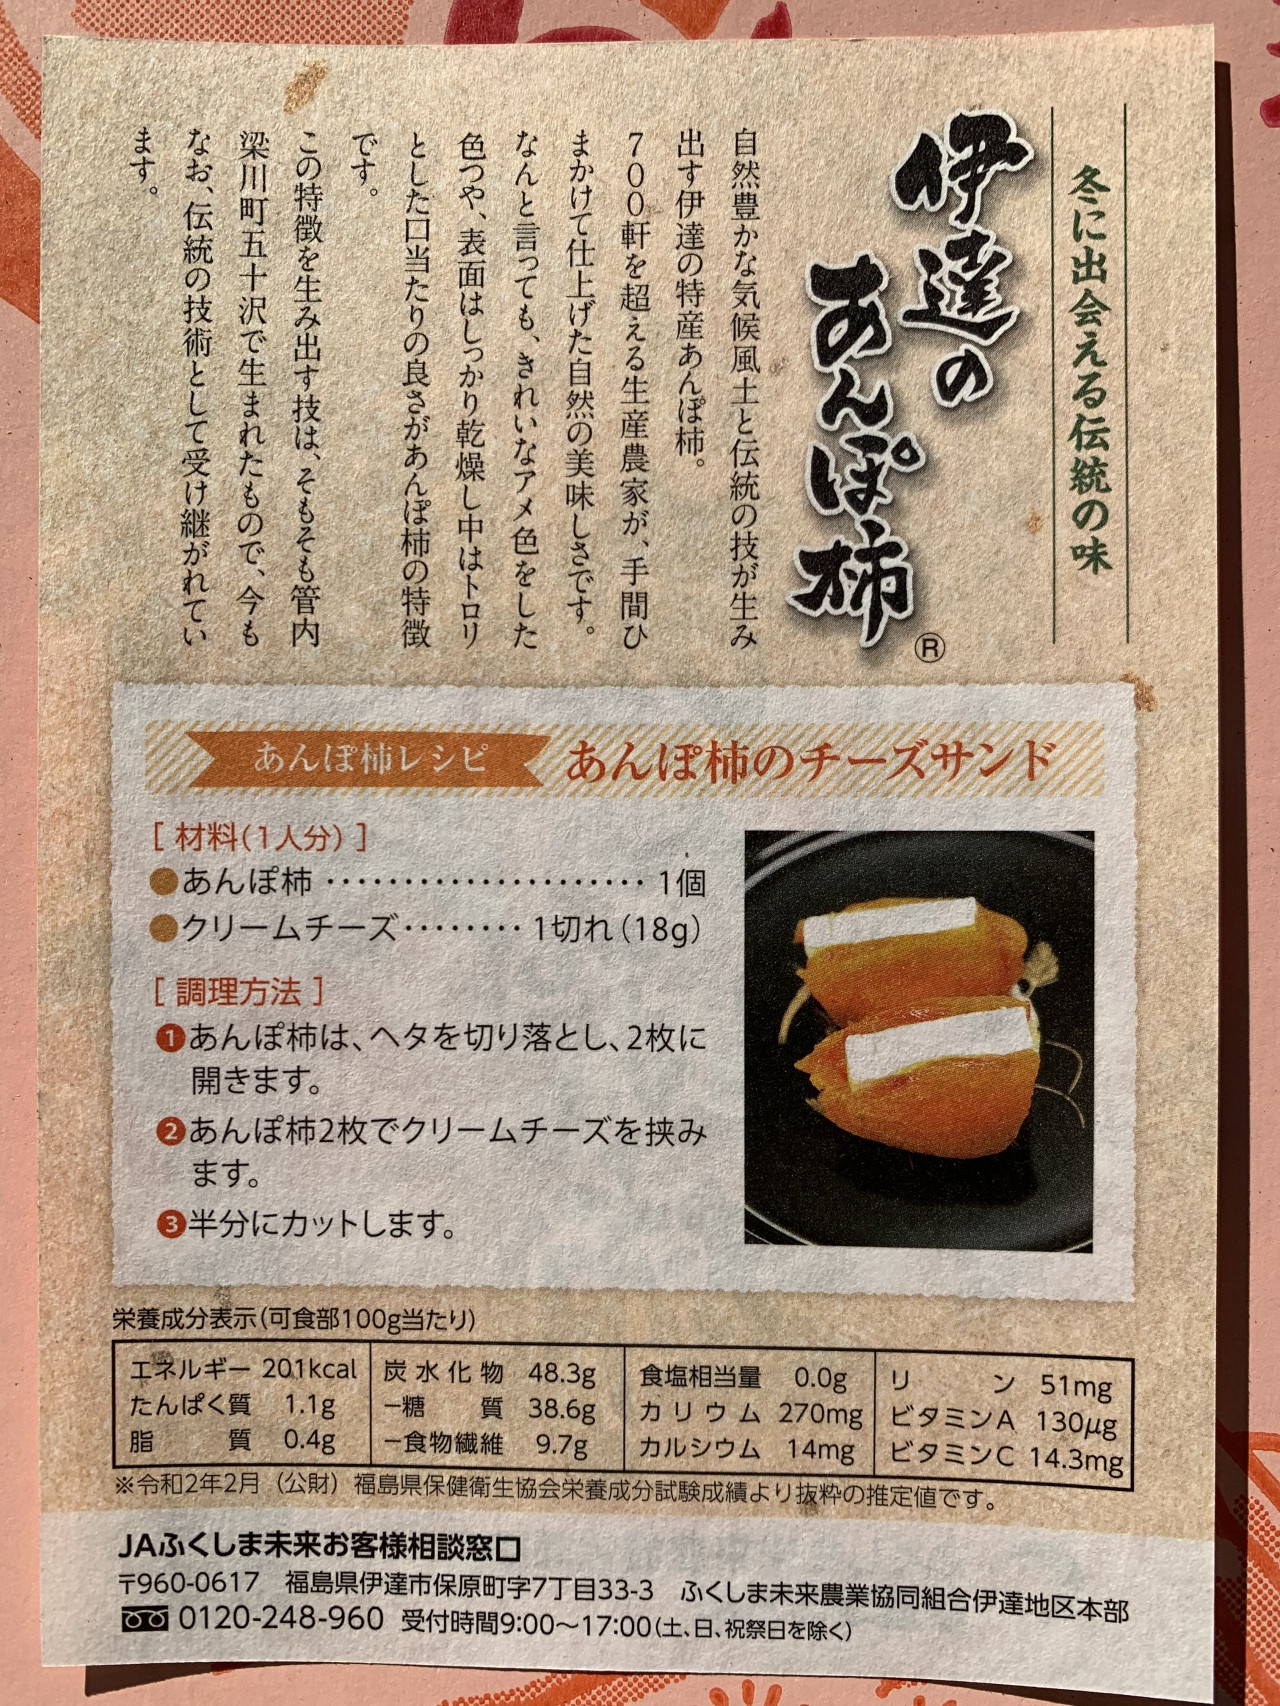 冬に出会える伝統の味
伊達の
あんぽ柿
®
自然豊かな気候風土と伝統の技が生み
出す伊達の特産あんぽ柿。
700軒を超える生産農家が、手間ひ
まかけて仕上げた自然の美味しさです。
なんと言っても、きれいなアメ色をした
色つや、表面はしっかり乾燥し中はトロリ
とした口当たりの良さがあんぽ柿の特徴
です。
この特徴を生み出す技は、そもそも管内
梁川町五十沢で生まれたもので、今も
なお、伝統の技術として受け継がれてい
ます。
あんぽ柿レシピ あんぽ柿のチーズサンド
[ 材料(1人分) ]
●あんぽ柿 ······················ 1個
●クリームチーズ········ 1切れ(18g)
[ 調理方法 ]
❶あんぽ柿は、ヘタを切り落とし、2枚に
開きます。
❷あんぽ柿2枚でクリームチーズを挟み
ます。
❸半分にカットします。
栄養成分表示(可食部100g当たり)
エネルギー 201kcal 炭水化物 48.3g 食塩相当量 0.0g リン 51mg
たんぱく質 1.1g −糖質 38.6g カリウム 270mg ビタミンA 130μg
脂質 0.4g −食物繊維 9.7g カルシウム 14mg ビタミンC 14.3mg
※令和2年2月（公財）福島県保健衛生協会栄養成分試験成績より抜粋の推定値です。
JAふくしま未来お客様相談窓口
〒960-0617 福島県伊達市保原町字7丁目33-3 ふくしま未来農業協同組合伊達地区本部
0120-248-960 受付時間9:00〜17:00(土、日、祝祭日を除く)